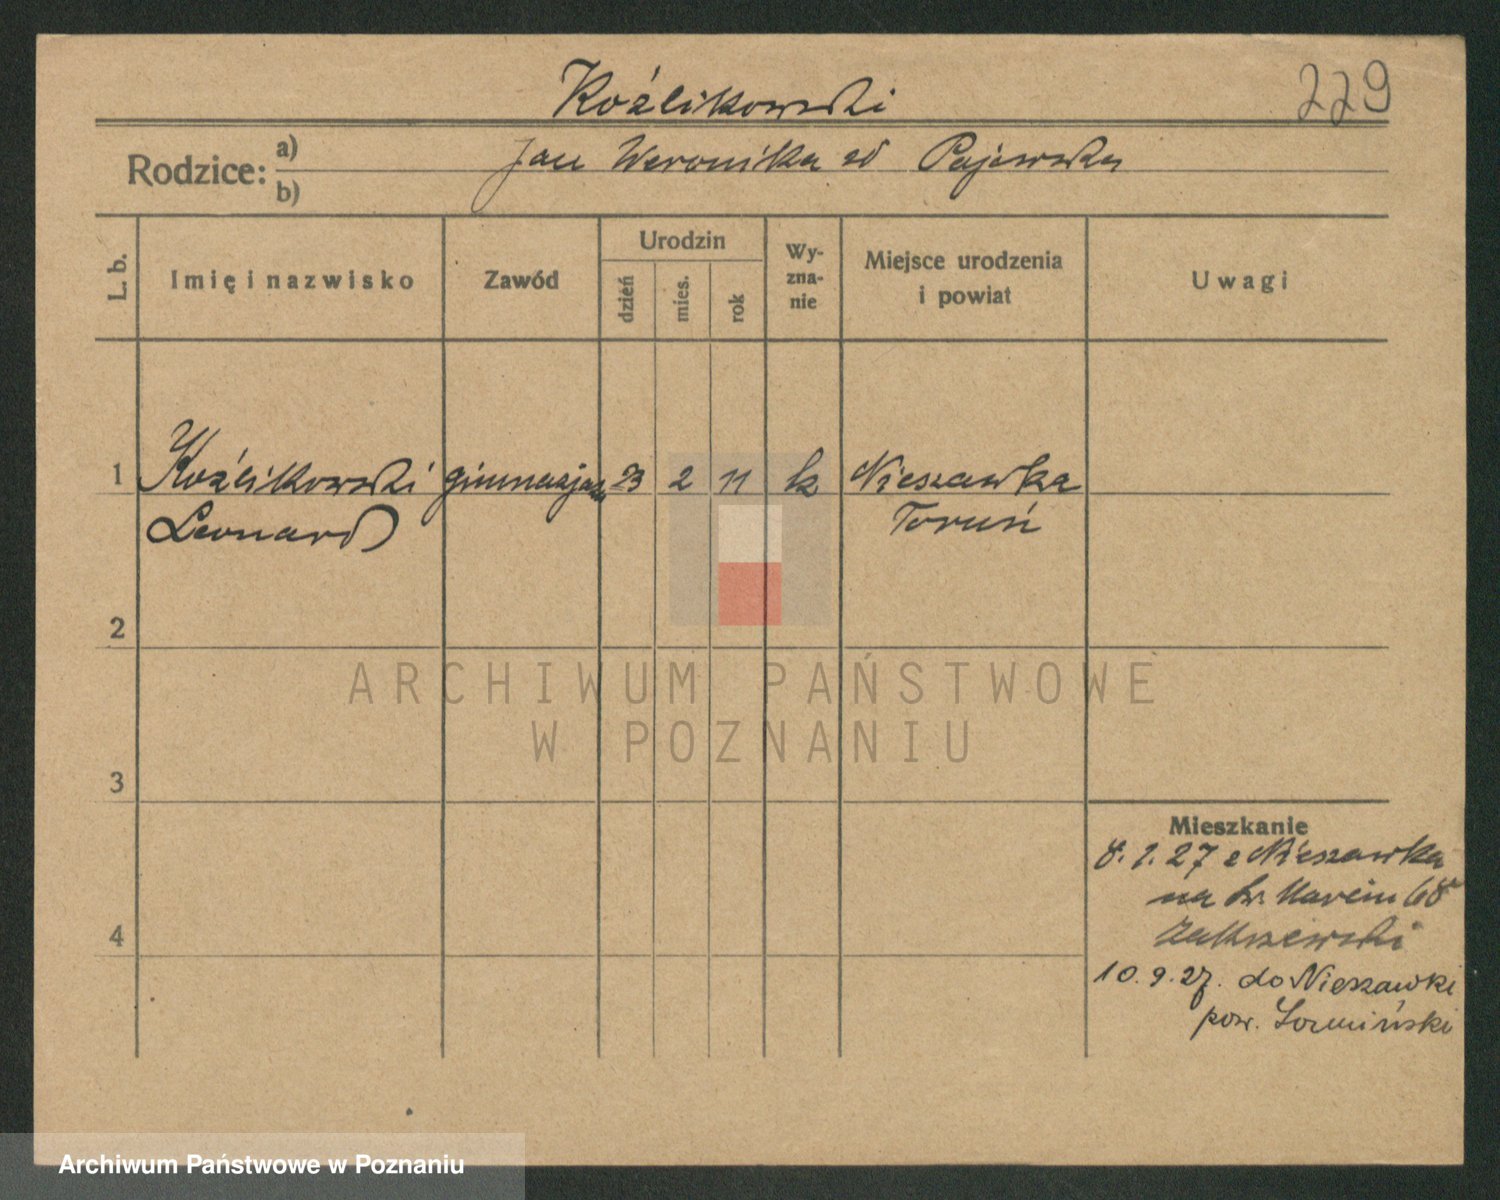 Koźlikowski
229
Rodzice: a) Jan Weronika zd Pajewska
b)
L. b.
Imię i nazwisko
Zawód
Urodzin
dzień
mies.
rok
Wy-
zna-
nie
Miejsce urodzenia
i powiat
Uwagi
1 Koźlikowski gimnazjas 23 2 11 k Nieszawka
Leonard Toruń
2
3
4
ARCHIWUM PAŃSTWOWE
W POZNANIU
Mieszkanie
8.1.27 z Nieszawka
na Św. Marcin 68
Zakrzewski
10.9.27. do Nieszawki
pow.
Archiwum Państwowe w Poznaniu